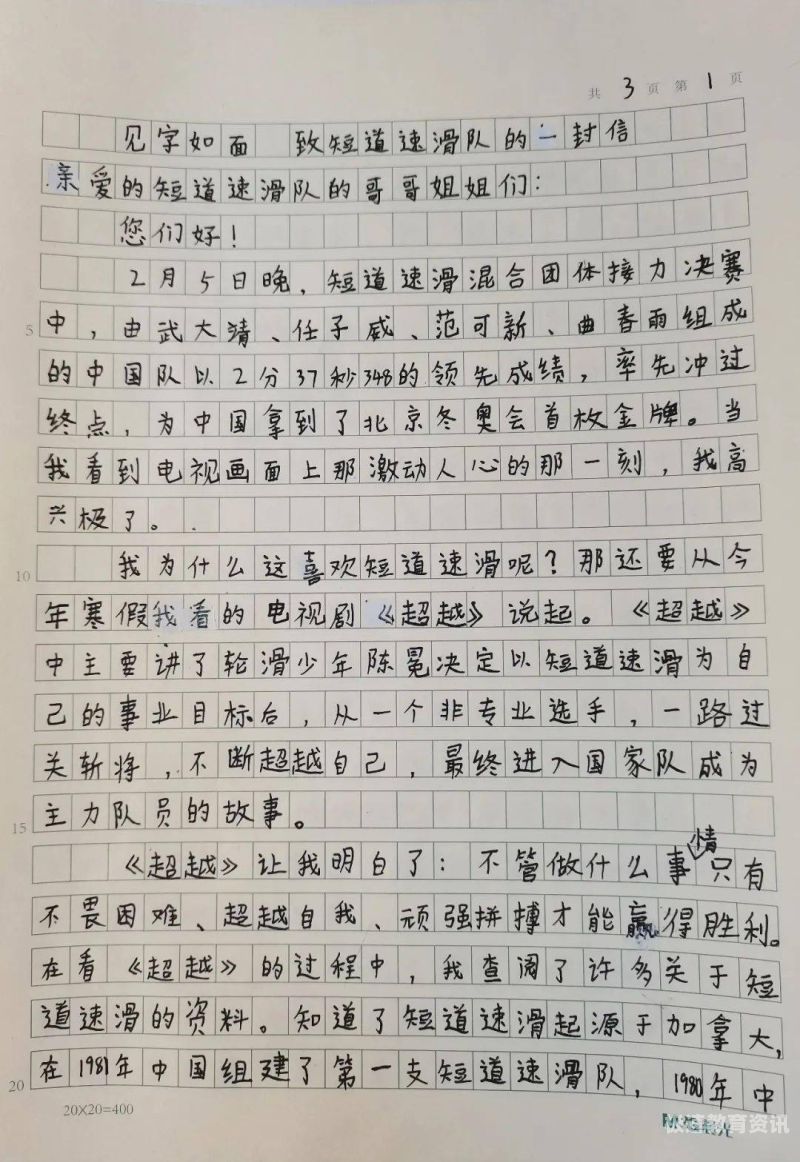 共 3 页 第 1 页
见字如面 致短道速滑队的一封信
亲爱的短道速滑队的哥哥姐姐们：
您们好！
2月5日晚，短道速滑混合团体接力决赛
5 中，由武大清、任子威、范可新、曲春雨组成
的中国队以2分37秒348的领先成绩，率先冲过
终点，为中国拿到了北京冬奥会首枚金牌。当
我看到电视画面上那激动人心的那一刻，我高
兴极了。
10 我为什么这喜欢短道速滑呢？那还要从今
年寒假我看的电视剧《超越》说起。《超越》
中主要讲了轮滑少年陈冕决定以短道速滑为自
己的事业目标后，从一个非专业选手，一路过
关斩将，不断超越自己，最终进入国家队成为
15 主力队员的故事。
《超越》让我明白了：不管做什么事情只有
不畏困难、超越自我、顽强拼搏才能赢得胜利。
在看《超越》的过程中，我查阅了许多关于短
道速滑的资料。知道了短道速滑起源于加拿大，
20 在1981年中国组建了第一支短道速滑队，1980年中
20×20=400
极速教育资讯